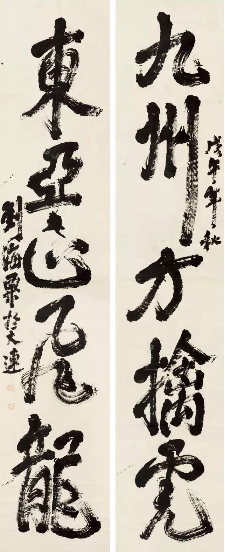 戊午年秋
九州方擒虎
東亞正龍
劉海粟於大連